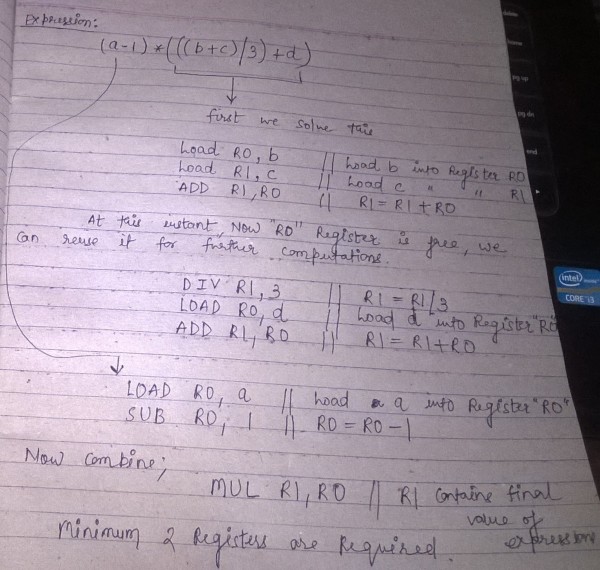 Expression:
(a-1) * (((b+c)/3)+d)
first we solve this
Load R0, b || Load b into Register R0
Load R1, c || Load c " " R1
ADD R1, R0 || R1 = R1 + R0
At this instant, Now "R0" Register is free, we
can reuse it for further computations.
DIV R1, 3 || R1 = R1/3
LOAD R0, d || Load d into Register "R0"
ADD R1, R0 || R1 = R1+R0
LOAD R0, a || Load a into Register "R0"
SUB R0, 1 || R0 = R0 - 1
Now Combine;
MUL R1, R0 || R1 Contains final
value of
expression
Minimum 2 Registers are Required.
pg up
pg dn
end
intel
CORE i3